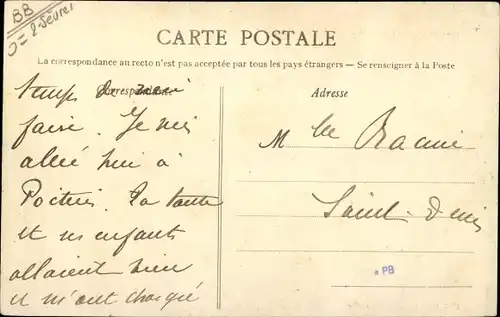 BB
D = 2 Sèvres
CARTE POSTALE
La correspondance au recto n'est pas acceptée par tous les pays étrangers — Se renseigner à la Poste
Correspondance
Adresse
temps de
faire. Je suis
allée hier à
Poitiers. La tante
et ses enfants
allaient bien
et m'ont chargé
Mlle Racine
Saint-Denis
* PB